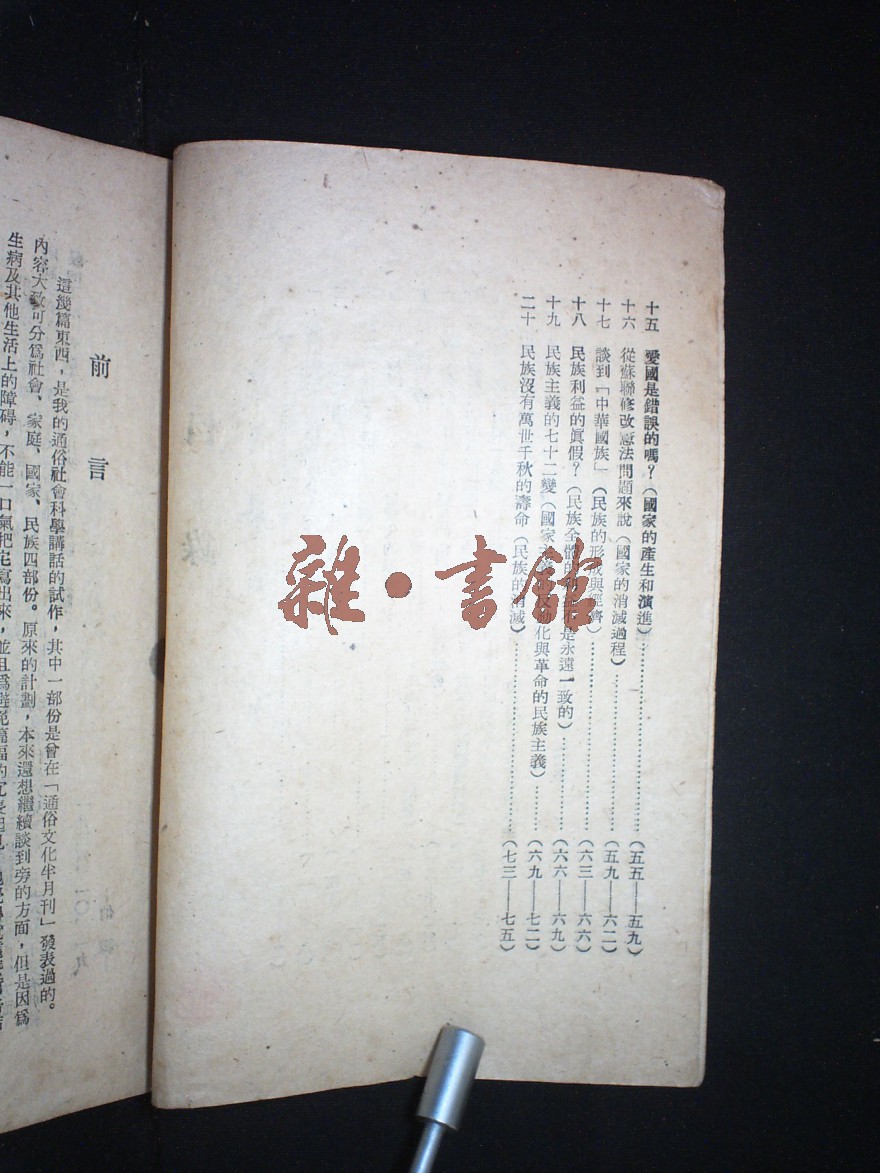 十五 愛國是錯誤的嗎？（國家的產生和演進）……（五五——五九）
十六 從蘇聯修改憲法問題來說（國家的消滅過程）……（五九——六二）
十七 談到「中華國族」（民族的形成與經濟）……（六三——六六）
十八 民族利益的眞假？（民族全體的利益不是永遠一致的）……（六六——六九）
十九 民族主義的七十二變（國家主義的反動化與革命的民族主義）……（六九——七二）
二十 民族沒有萬世千秋的壽命（民族的消滅）……（七三——七五）
雜・書館
前言
這幾篇東西，是我的通俗社會科學講話的試作，其中一部份是曾在「通俗文化半月刊」發表過的。
內容大致可分爲社會、家庭、國家、民族四部份。原來的計劃，本來還想繼續談到旁的方面，但是因爲
生病及其他生活上的障碍，不能一口氣把它寫出來，並且爲避免篇幅的冗長起見